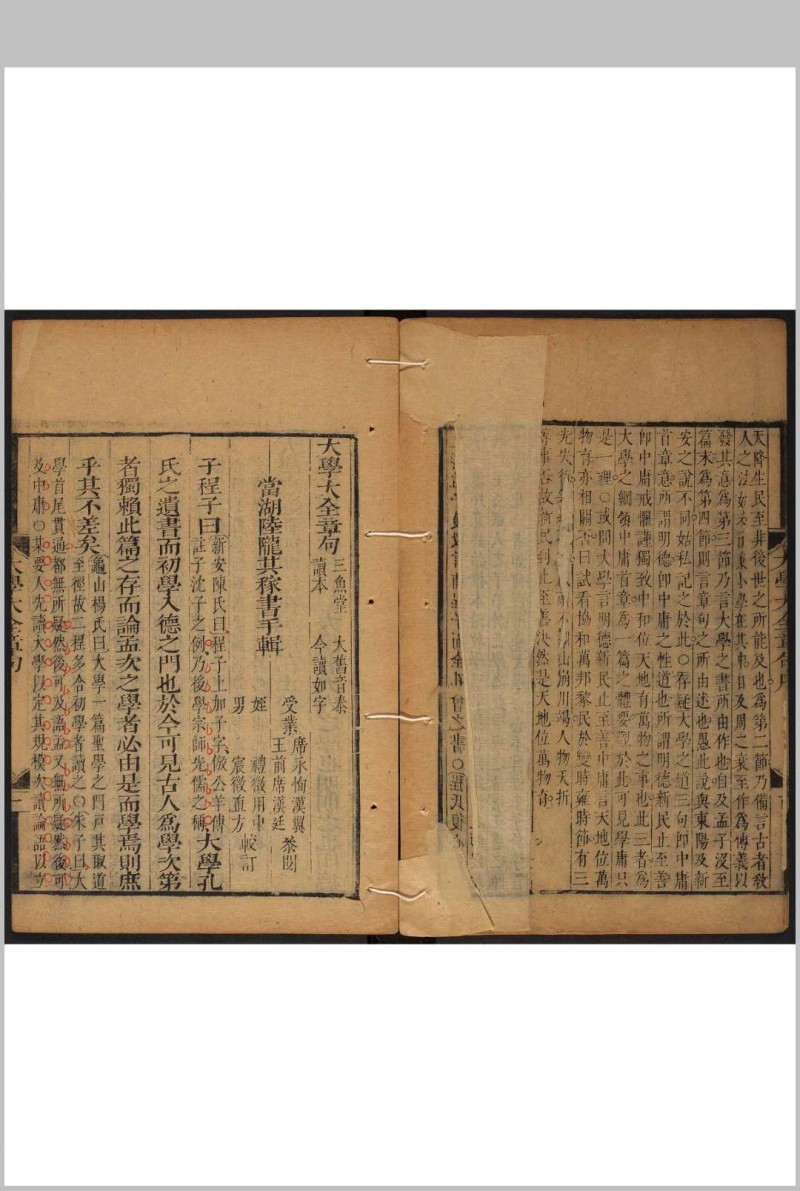 天降生民至非後世之所能及也爲第二節乃備言古者教
人之法
及周之衰至作爲傳義以
發其意爲第三節乃言大學之書所由作也自及孟子沒至
篇末爲第四節則言章句之所由述也愚此說與東陽及新
安之說不同姑私記之於此○存疑大學之道三句卽中庸
首章意所謂明德卽中庸之性道也所謂明德新民止至善
卽中庸戒懼謹獨致中和位天地育萬物之事也此三者爲
大學之綱領中庸首章爲一篇之體要觀於此可見學庸只
是一理○或問大學言明德新民止至善中庸言天地位萬
物育亦相關否曰試看協和萬邦黎民於變時雍時節有三
光失行
山崩川竭人物夭折
止至善決然是天地位萬物育
大學大全章句
大學大全章句 三魚堂讀本 大舊音泰今讀如字
當湖陸隴其稼書手輯
受業 席永恂漢翼 王前席漢廷 叅閱
姪 禮徵用中
男 宸徵直方 較訂
子程子曰 新安陳氏曰程子上加子字倣公羊傳註子沈子之例乃後學宗師先儒之稱 大學孔
氏之遺書而初學入德之門也於今可見古人爲學次第
者獨賴此篇之存而論孟次之學者必由是而學焉則庶
乎其不差矣 龜山楊氏曰大學一篇聖學之門戶其取道至徑故二程多令初學者讀之○朱子曰大
學首尾貫通都無所疑然後可及語孟又無所疑然後可
及中庸○某要人先讀大學以定其規模次讀論語以立
大學大全章句